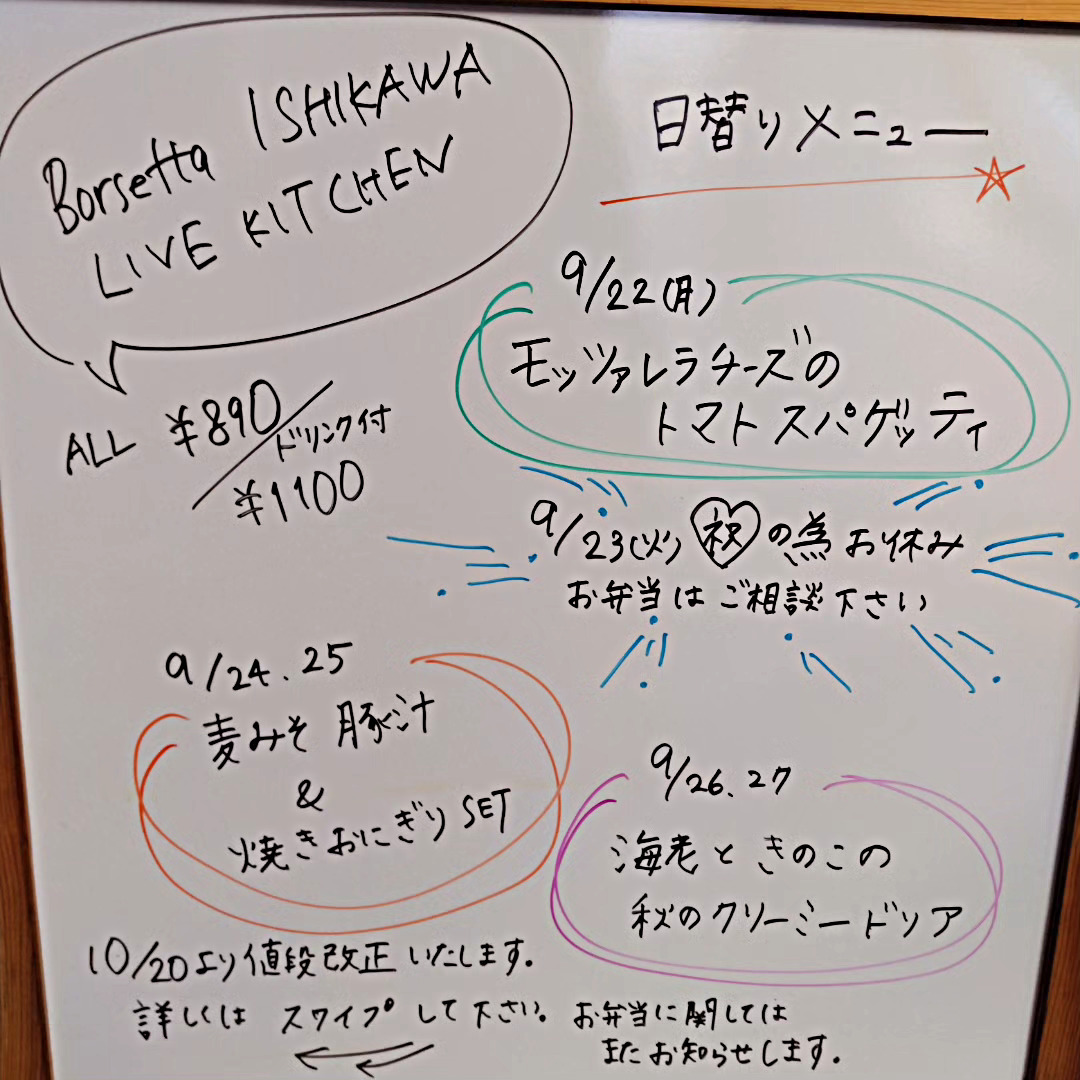 Borsetta ISHIKAWA
LIVE KITCHEN
日替りメニュー
ALL ¥890
ドリンク付
¥1100
9/22(月)
モッツァレラチーズの
トマトスパゲッティ
9/23(火) 祝の為お休み
お弁当はご相談下さい
9/24.25
麦みそ 豚汁
&
焼きおにぎりSET
9/26.27
海老ときのこの
秋のクリーミードリア
10/20より値段改正いたします。
詳しくは スワイプして下さい。
お弁当に関しては
またお知らせします。